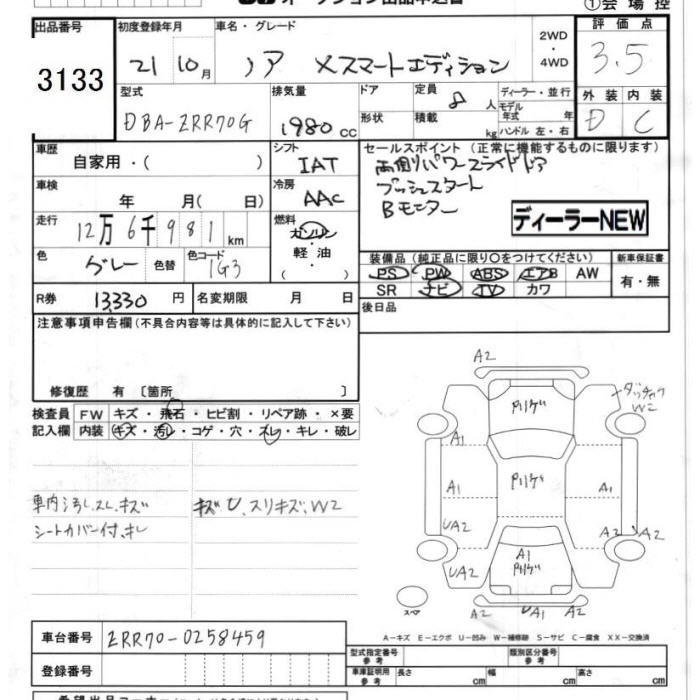 オークション出品申込書
①会場控
出品番号 3133
初度登録年月 21 10月
車名・グレード ノア Xスマートエディション
2WD・4WD
評価点 3.5
型式 DBA-ZRR70G
排気量 1980 cc
ドア
形状
定員 8 人
積載 kg
ディーラー・並行
モデル年式 年
ハンドル 左・右
外装 内装
D C
車歴 自家用・( )
シフト IAT
セールスポイント (正常に機能するものに限ります)
両側パワースライドドア
プッシュスタート
Bモニター
ディーラーNEW
車検 年 月( 日)
冷房 AAC
走行 12万6千981 km
燃料 ガソリン・軽油・( )
色 グレー 色替 色コード 1G3
装備品 (純正品に限り○をつけてください)
新車保証書
PS PW ABS エアB AW
SR ナビ TV カワ
有・無
R券 13,330 円 名変期限 月 日
後日品
注意事項申告欄(不具合内容等は具体的に記入して下さい)
修復歴 有 〔箇所 〕
検査員記入欄
FW キズ・飛石・ヒビ割・リペア跡・×要
内装 キズ・汚レ・コゲ・穴・スレ・キレ・破レ
車内汚レ.スレ.キズ
シートカバー付、キレ
キズU、スリキズ、W2
A2
ダッチャク
W2
A1
A1
A1
UA2
A2
A2
UA2
A2
UA1
A2
スペア
A-キズ E-エクボ U-凹み W-補修跡 S-サビ C-腐食 XX-交換済
車台番号 ZRR70-0258459
登録番号
型式指定番号 参考
類別区分番号 参考
車庫証明用 参考 長さ cm 幅 cm 高さ cm